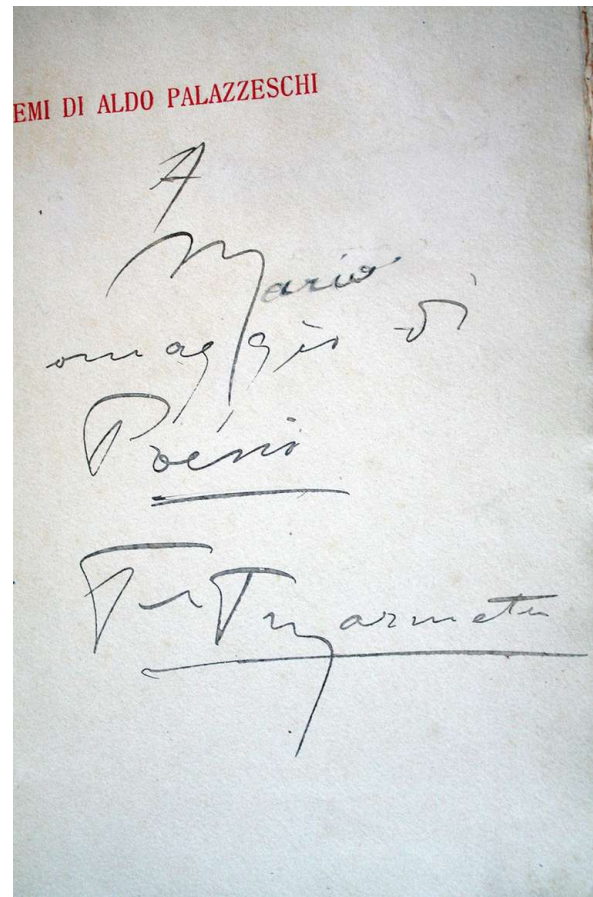 EMI DI ALDO PALAZZESCHI
A
Mario
omaggio di
Poesia
F. T. Marinetti